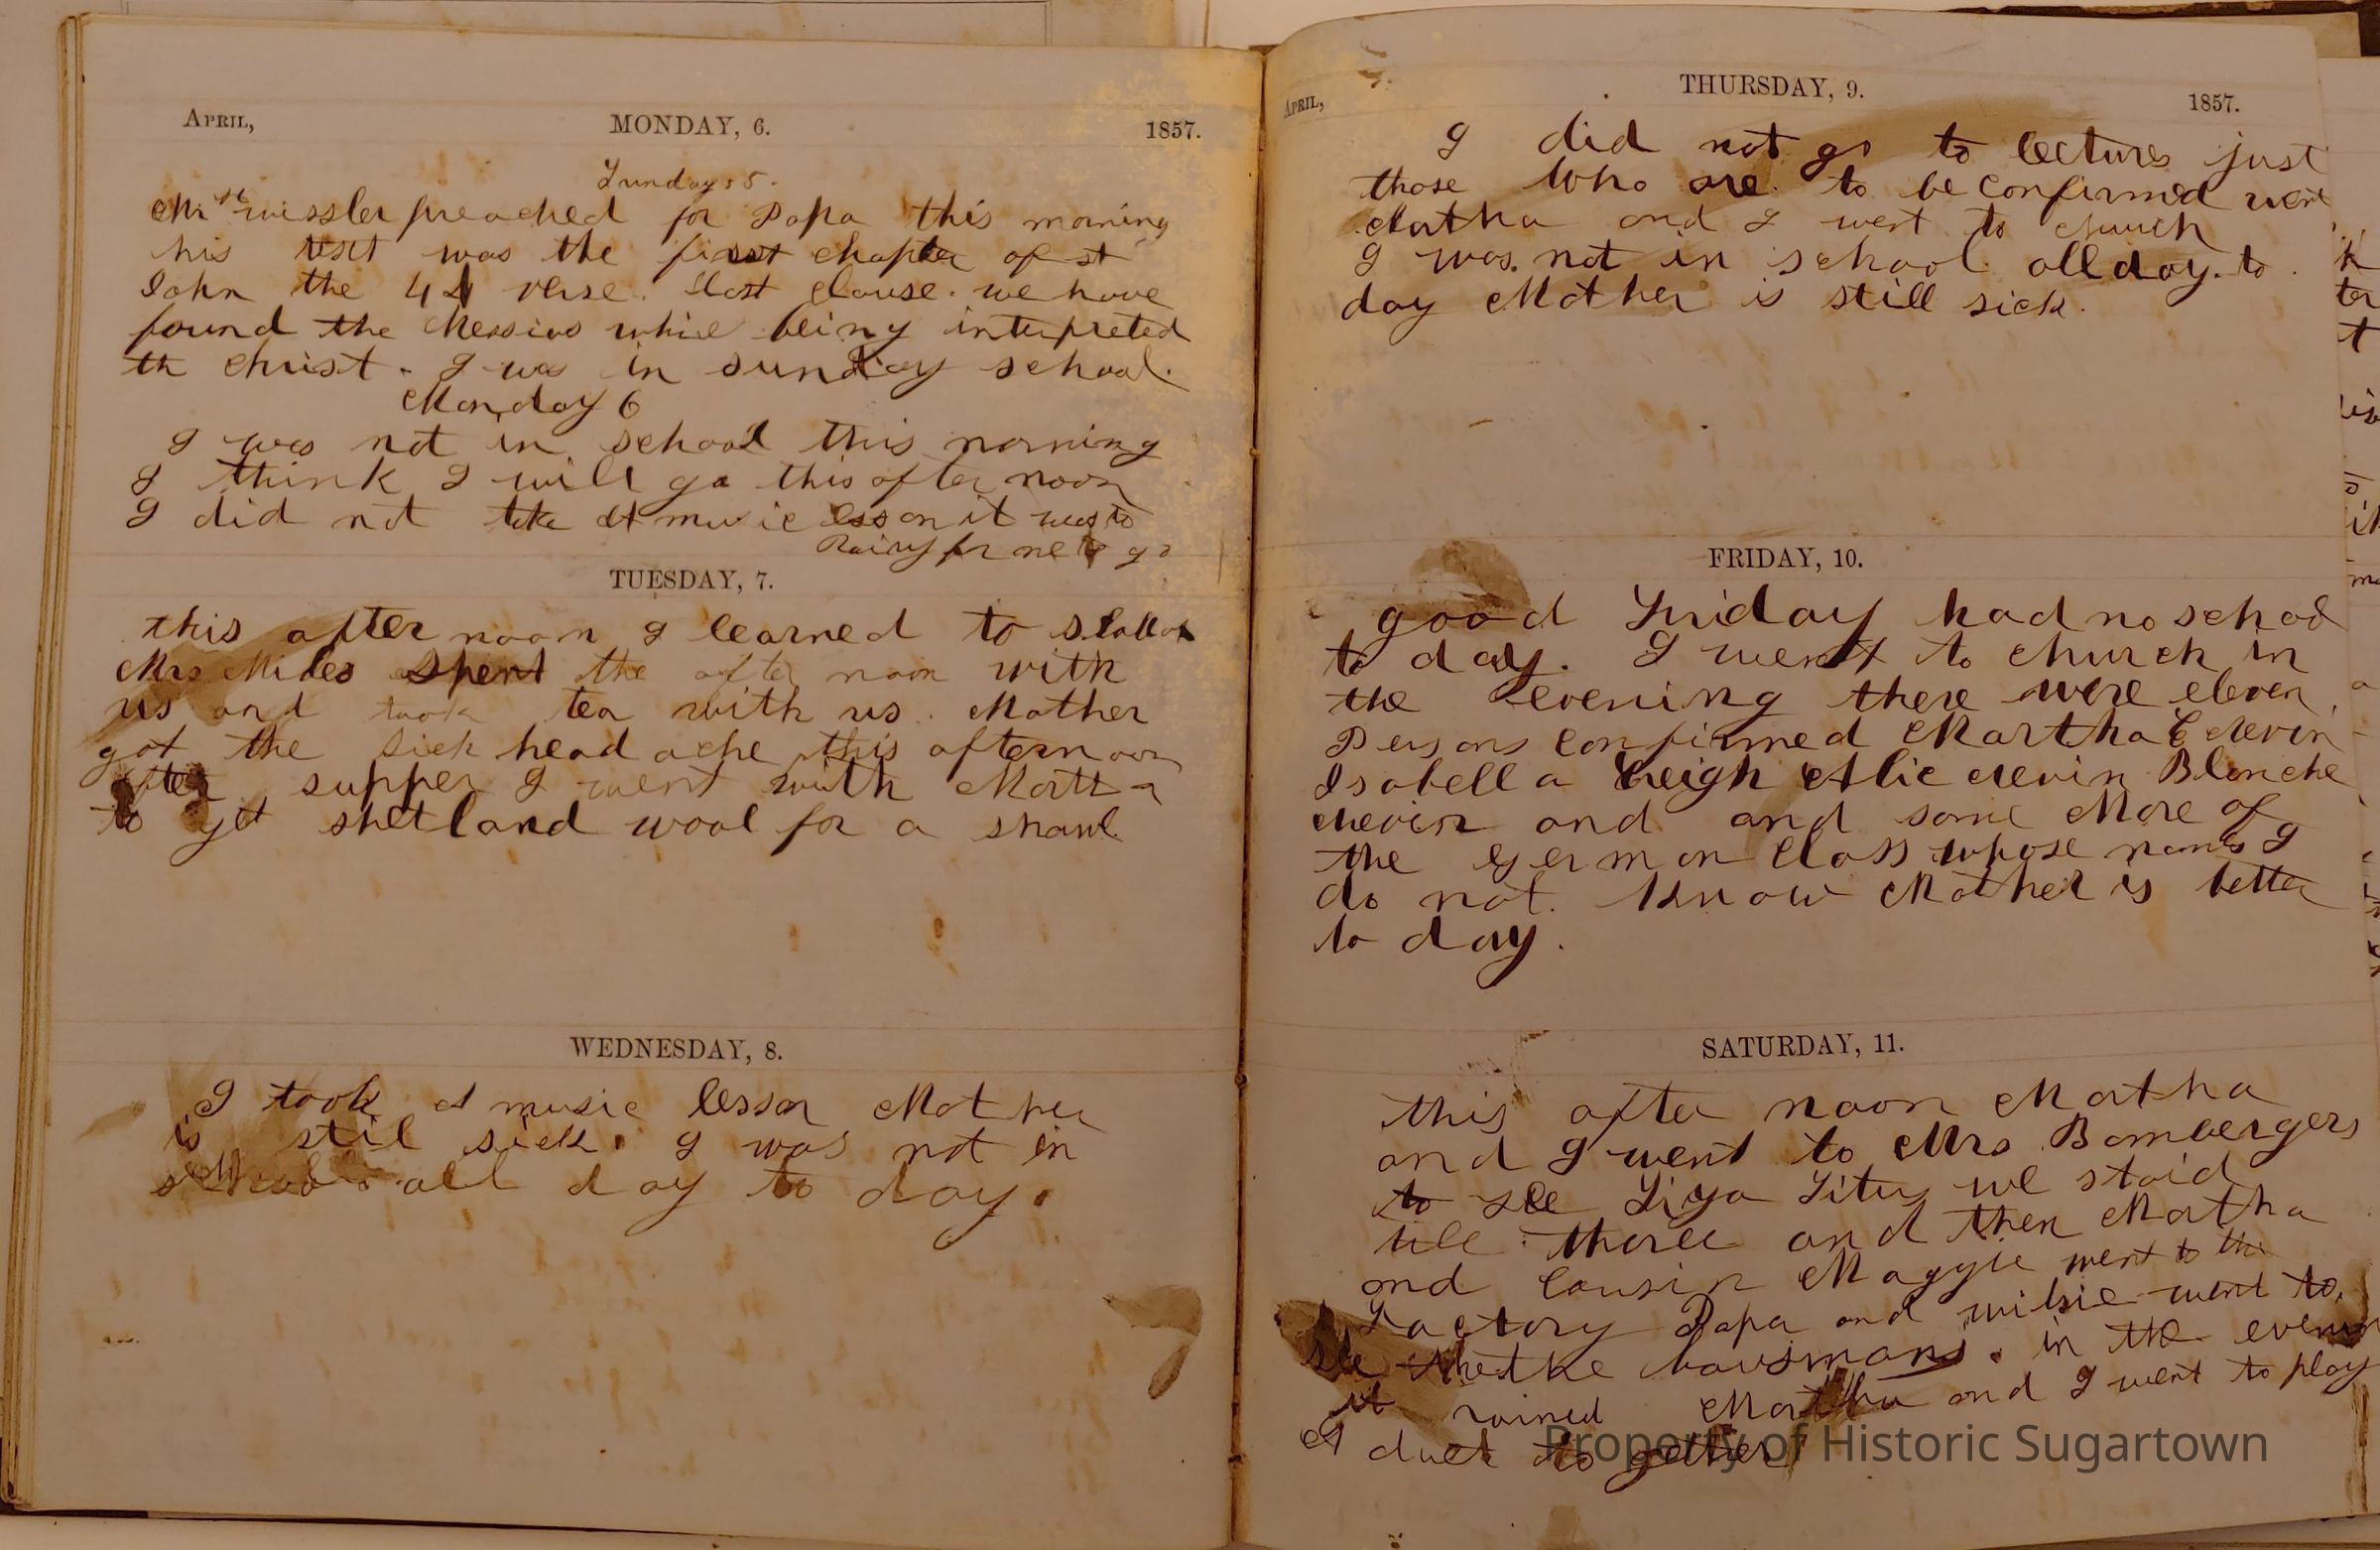 April, MONDAY, 6. 1857.
Sunday 5.
Mr wissler preached for Papa this morning
his text was the first chapter of st
John the 41 verse. last clause. we have
found the Messias which being interpreted
th Christ. I was in sunday school.
Monday 6
I was not in school this morning
I think I will go this after noon
I did not take A music lesson it was to
Rainy for me to go
TUESDAY, 7.
this after noon I learned to
Mrs Miles spent the after noon with
us and took tea with us. Mother
got the sick head ache this afternoon
after supper I went with Matt
to get shetland wool for a shawl
WEDNESDAY, 8.
I took A music lesson Mother
is stil sick. I was not in
school all day to day.
April, THURSDAY, 9. 1857.
I did not go to lectures just
those who are to be confirmed went
Martha and I went to church
I was not in school all day. to
day Mother is still sick.
FRIDAY, 10.
good Friday had no school
to day. I went to church in
the evening there were eleven
Persons confirmed Martha Nevin
Isabella Leigh Alie Nevin Blanche
Nevin and and some More of
the German Class whose names I
do not know Mother is better
to day.
SATURDAY, 11.
this after noon Martha
and I went to Mrs Bombergers
to see we staid
till three and then Martha
and Cousin Maggie went to the
Factory Papa and wilsie went to
see the in the evening
it rained Martha and I went to play
A duet to gether
Property of Historic Sugartown